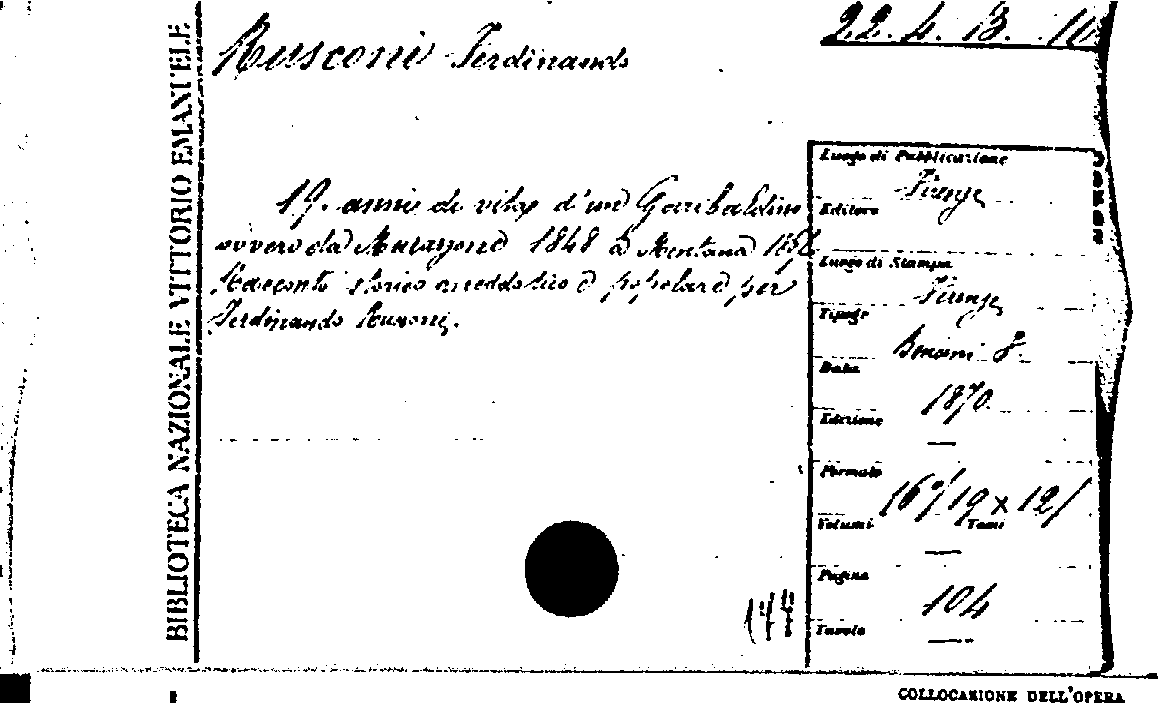 22. 4. B. 10
Rusconi Ferdinando
BIBLIOTECA NAZIONALE VITTORIO EMANUELE
19. anni di vita d'un Garibaldino
ovvero da Morazzone 1848 a Mentana
Racconto storico aneddotico e popolare per
Ferdinando Rusconi.
Luogo di Pubblicazione
Firenze
Editore
Luogo di Stampa
Firenze
Tipogr
Data
1870
Edizione
—
Formato
16°/19 x 12/
Volumi Tomi
—
Pagine
104
Tavole
—
COLLOCAZIONE DELL'OPERA